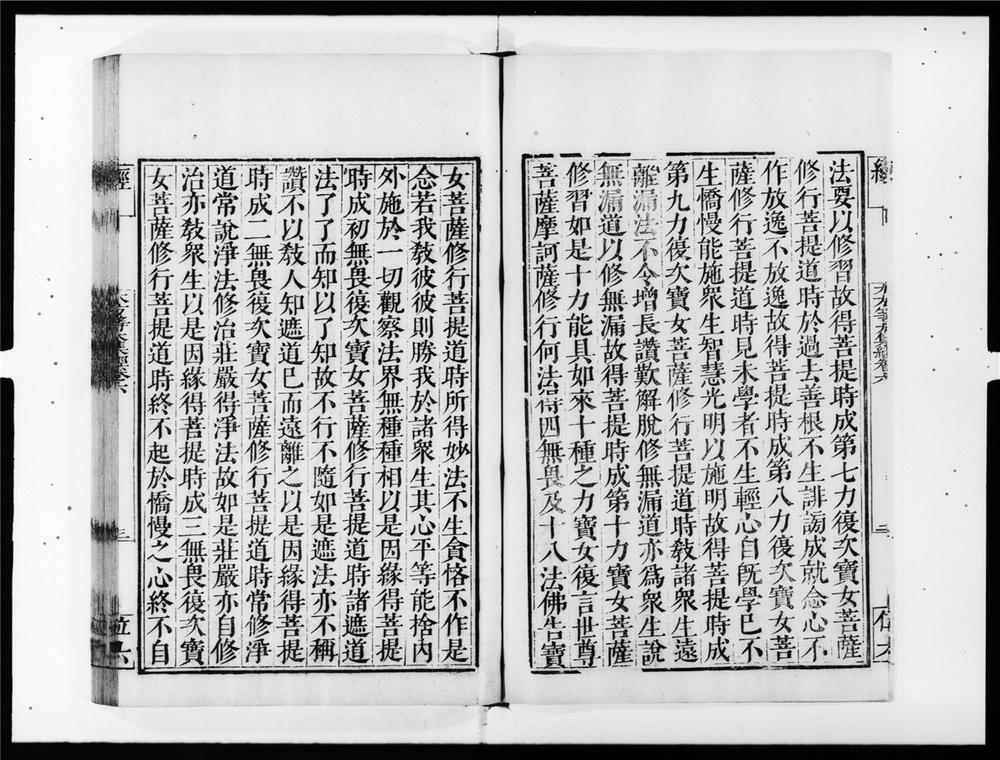 法要以修習故得菩提時成第七力復次寶女菩薩
修行菩提道時於過去善根不生誹謗成就念心不
作放逸不放逸故得菩提時成第八力復次寶女菩
薩修行菩提道時見未學者不生輕心自旣學已不
生憍慢能施衆生智慧光明以施明故得菩提時成
第九力復次寶女菩薩修行菩提道時敎諸衆生遠
離漏法不令增長讚歎解脫修無漏道亦爲衆生說
無漏道以修無漏故得菩提時成第十力寶女菩薩
修習如是十力能具如來十種之力寶女復言世尊
菩薩摩訶薩修行何法得四無畏及十八法佛告寶
女菩薩修行菩提道時所得妙法不生貪悋不作是
念若我敎彼彼則勝我於諸衆生其心平等能捨内
外施於一切觀察法界無種種相以是因緣得菩提
時成初無畏復次寶女菩薩修行菩提道時諸遮道
法了了而知以了知故不行不隨如是遮法亦不稱
讚不以敎人知遮道已而遠離之以是因緣得菩提
時成二無畏復次寶女菩薩修行菩提道時常修淨
道常說淨法修治莊嚴得淨法故如是莊嚴亦自修
治亦敎衆生以是因緣得菩提時成三無畏復次寶
女菩薩修行菩提道時終不起於憍慢之心終不自